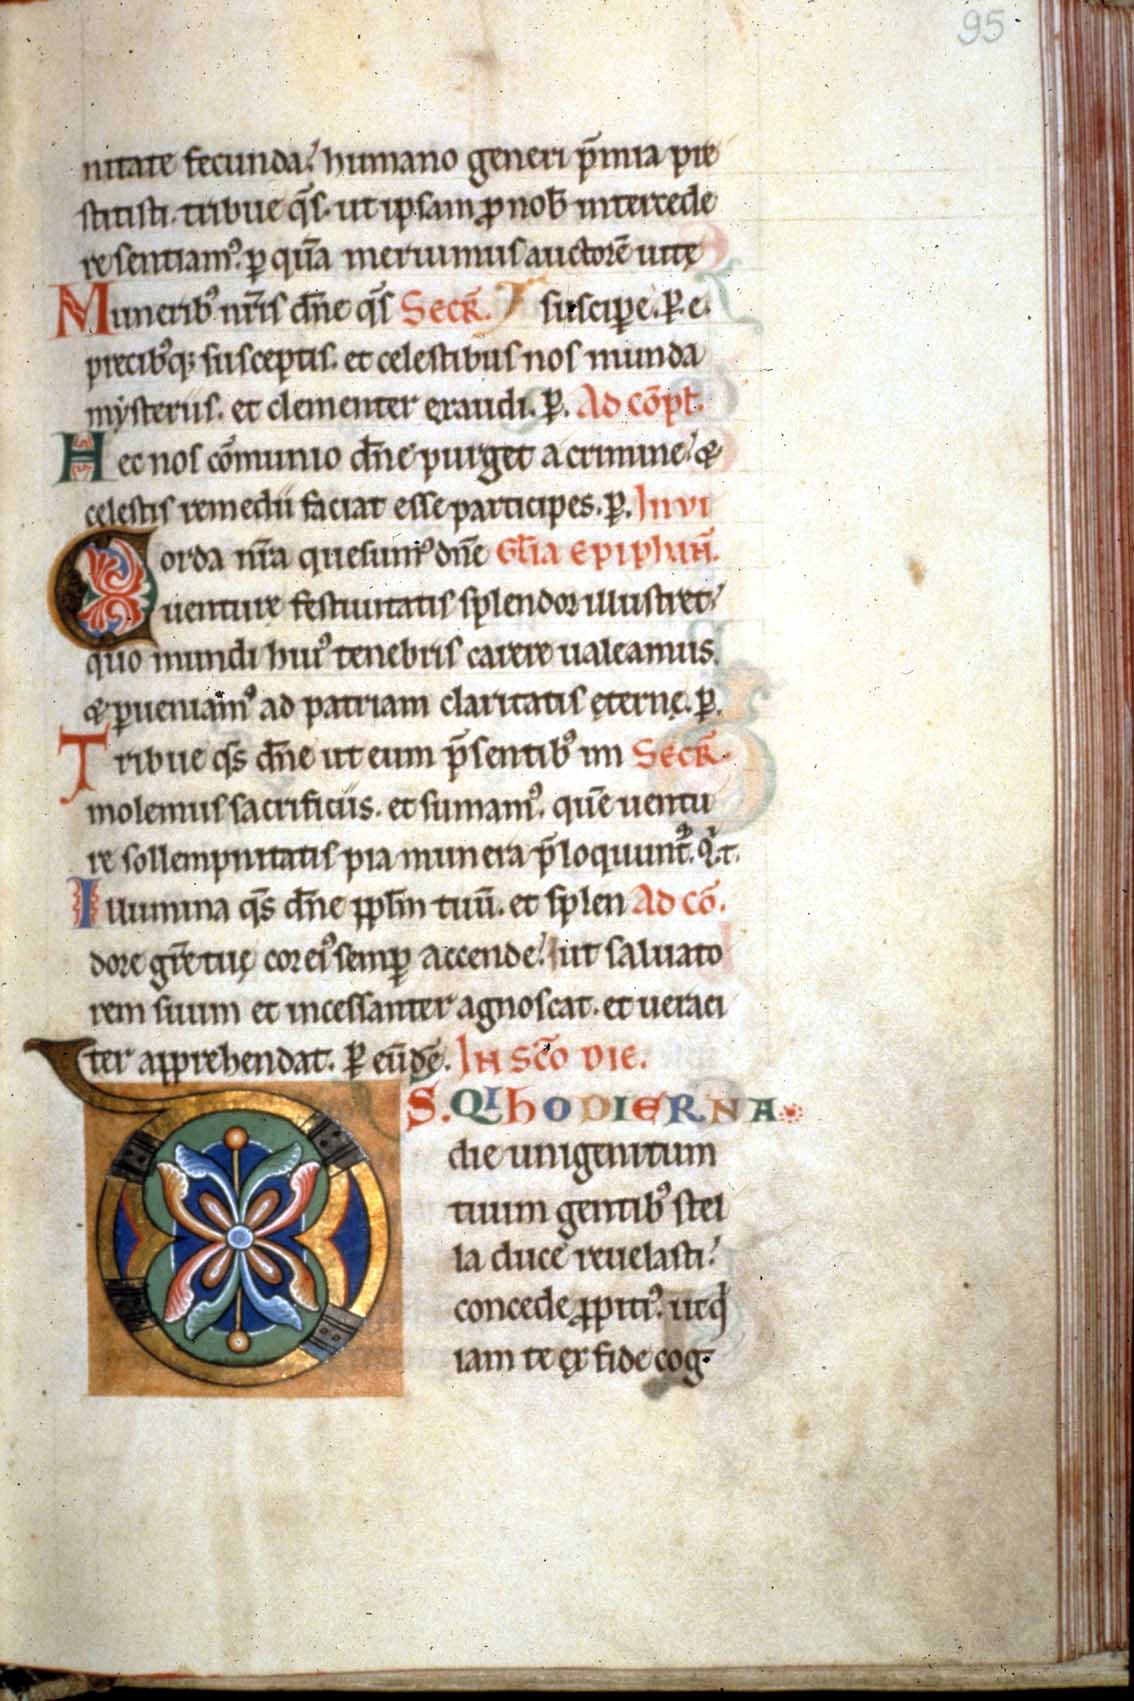 95
nitate fecunda. humano generi p̄mia pre
stitisti. tribue q̄s. ut ipsam ꝓ nob̄ intercede
re sentiam᷒. ꝑ quā meruimus auctorē uitę
Munerib᷒ nr̄is dn̄e q̄s Secr̄. suscipe. P. e.
precib᷒q; susceptis. et celestibus nos munda
mẏsteriis. et clementer exaudi. P. Ad cōpl.
Hec nos cōmunio dn̄e purget a crimine. &
celestis remedii faciat esse participes. P. In vi
Corda nr̄a quesum᷒ dn̄e Gl̄ia Epiphan̄.
uenturę festiuitatis splendor illustret.
quo mundi hui᷒ tenebris carere ualeamus.
& ꝑueniam᷒ ad patriam claritatis ęternę. P.
Tribue q̄s dn̄e ut eum p̄sentib᷒ im Secr̄.
molemus sacrificiis. et sumam᷒. quē uentu
re sollempnitatis pia munera p̄loquunt᷒. Q. t.
Illumina q̄s dn̄e ppl̄m tuū. et splen Ad cō.
dore gr̄e tuę cor ei᷒ semꝑ accende. ut saluato
rem suum et incessanter agnoscat. et ueraci
ter apprehendat. P eūdē. In sc̄o die.
DS. Qi hodierna
die unigenitum
tuum gentib᷒ stel
la duce reuelasti.
concede ꝓpiti᷒. ut q̇
iam te ex fide cog